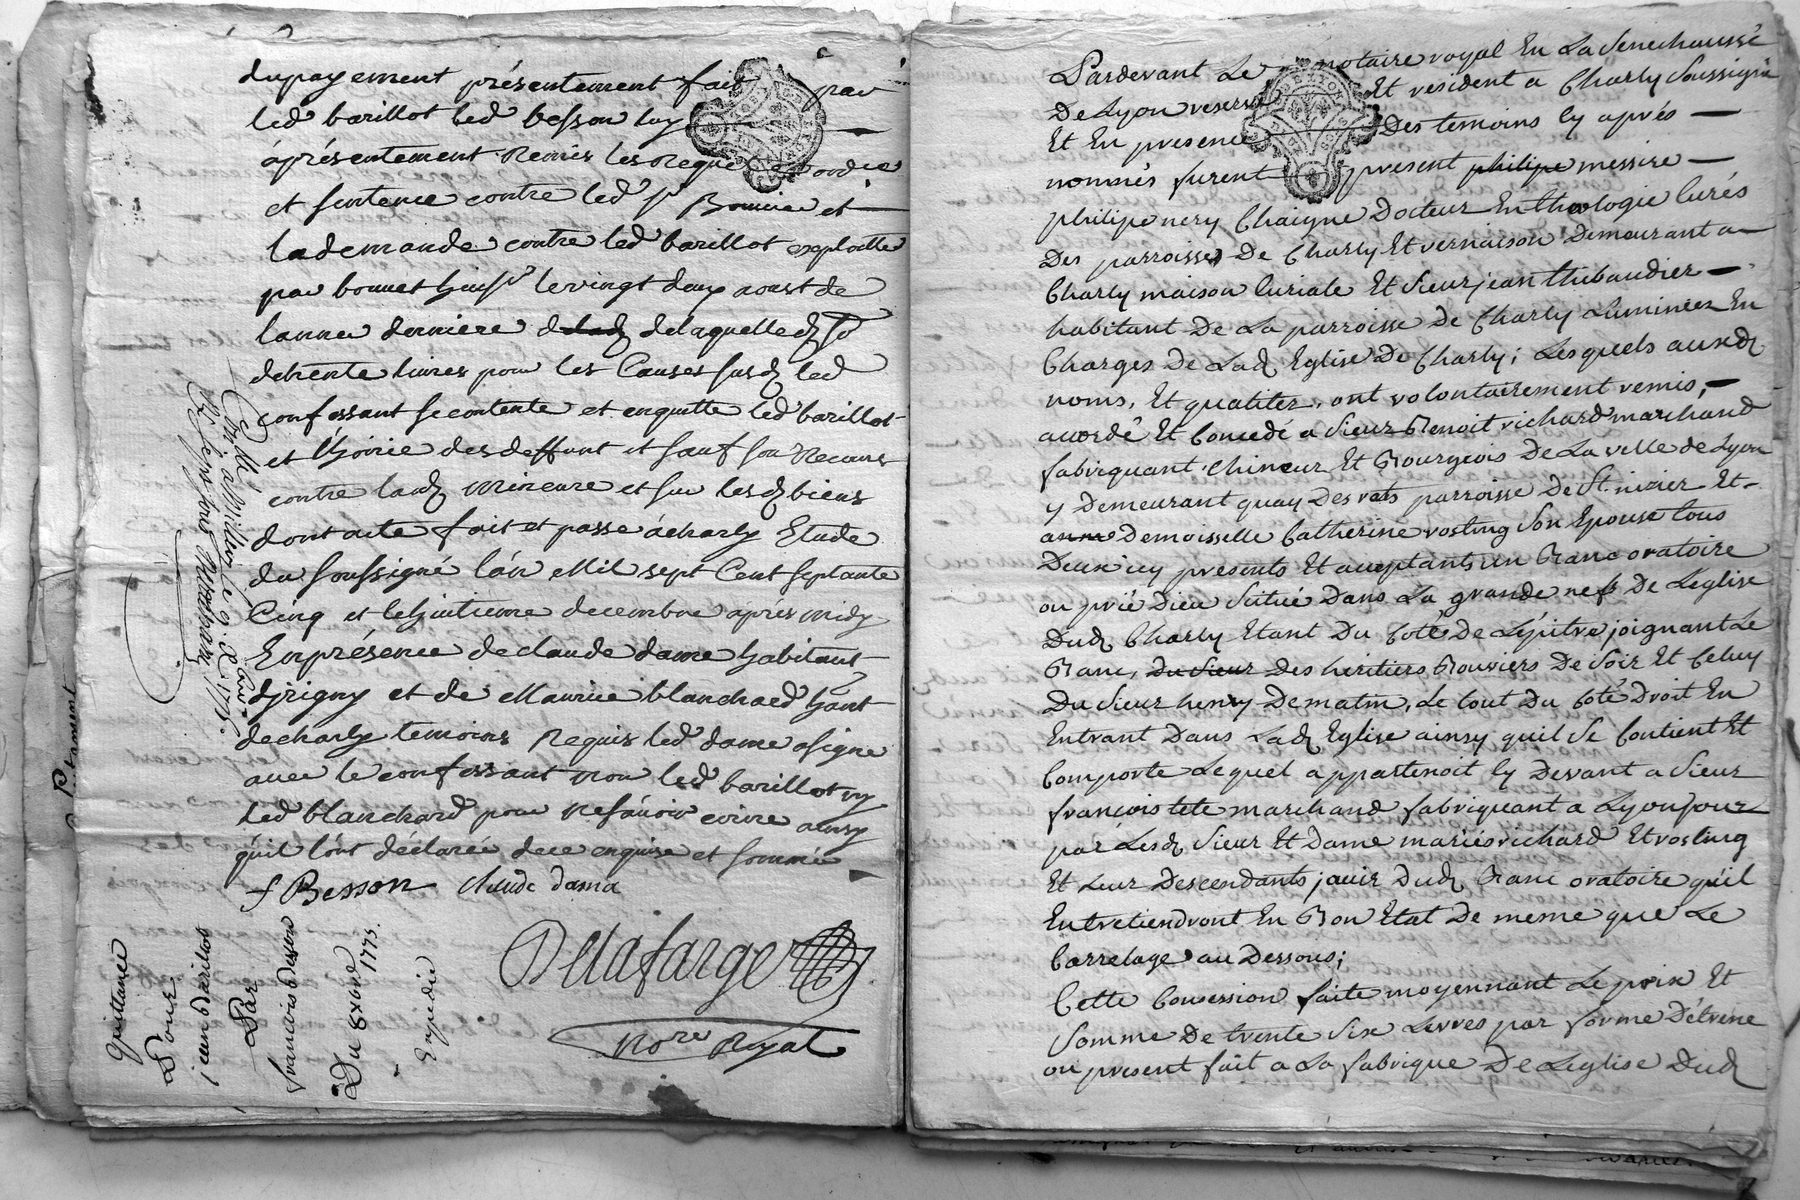 dupayement présentement fait par
led barillot led besson luy
áprésentement Remis les Reque et ordce
et sentence contre led sr Bonnice et
lademande contre led barillot exploitte
par bonnet huissr levingt deux aoust de
lannee derniere delaquelle
detrente livres pour les Causes susd led
confessant se contente et enquitte led barillot
et lhoirie dudeffunt et sauf son Recours
contre lad mineure et sur lesd biens
dont acte fait et passé ácharly Etude
du soussigné l'án Mil sept Cent septante
Cinq et lehuitieme decembre aprés midy
Enprésence declaude dama habitant
djrigny et de Maurice blanchard hant
decharly temoins Requis led dama asigné
avec le confessant non led barillot ny
led blanchard pour nesávoir ecrire ainsy
quil lónt declaré dece enquis et sommé
f Besson claude dama
Dellafarge
Nore Royal
Conllé à Millery le 9. Xbre 1775.
quittance
Pour
jean barillot
Par
francois besson
Du 8 xbre 1775.
Expedié
Pardevant Le notaire royal En La Senechaussé
De Lyon reservé Et resident a Charly Soussigné
Et En presence Des temoins Cy aprés
nommés furent present philipe messire
philipe nery Chaigne Docteur En theologie Curés
Des parroisses De Charly Et vernaison Demeurant a
Charly maison Curiale Et Sieur jean thibaudier
habitant De La parroisse De Charly Luminier En
Charges De Lad Eglise De Charly; Lesquels auxd
noms, Et qualités, ont volontairement remis,
acordé Et Concedé a Sieur Benoit richard marchand
fabriquant Chineur Et Bourgeois De La ville de Lyon
y Demeurant quay Des rets parroisse De St. nizier Et
anne Demoisselle Catherine rosting Son Epouse tous
Deux icy présents Et acceptants un Banc oratoire
ou prié Dieu Situé Dans La grande nef De Leglise
Dud Charly Etant Du Coté De Lépitre joignant Le
Banc, du Sieur Des heritiers Bouviers De Soir Et Celuy
Du Sieur henry De matin, Le tout Du Coté Droit En
Entrant Dans Lad Eglise ainsy quil Se Contient Et
Comporte Lequel appartenoit Cy Devant a Sieur
françois tete marchand fabriquant a Lyon pour
par Lesd Sieur Et Dame mariés richard Et rosting
Et Leur Descendants jouir Dud Banc oratoire quil
Entretiendront En Bon Etat De meme que Le
Carrelage au Dessous;
Cette Consession faite moyennant Le prix Et
Somme De trente Six Livres par forme D'étrene
ou present fait a La fabrique De Leglise Dud